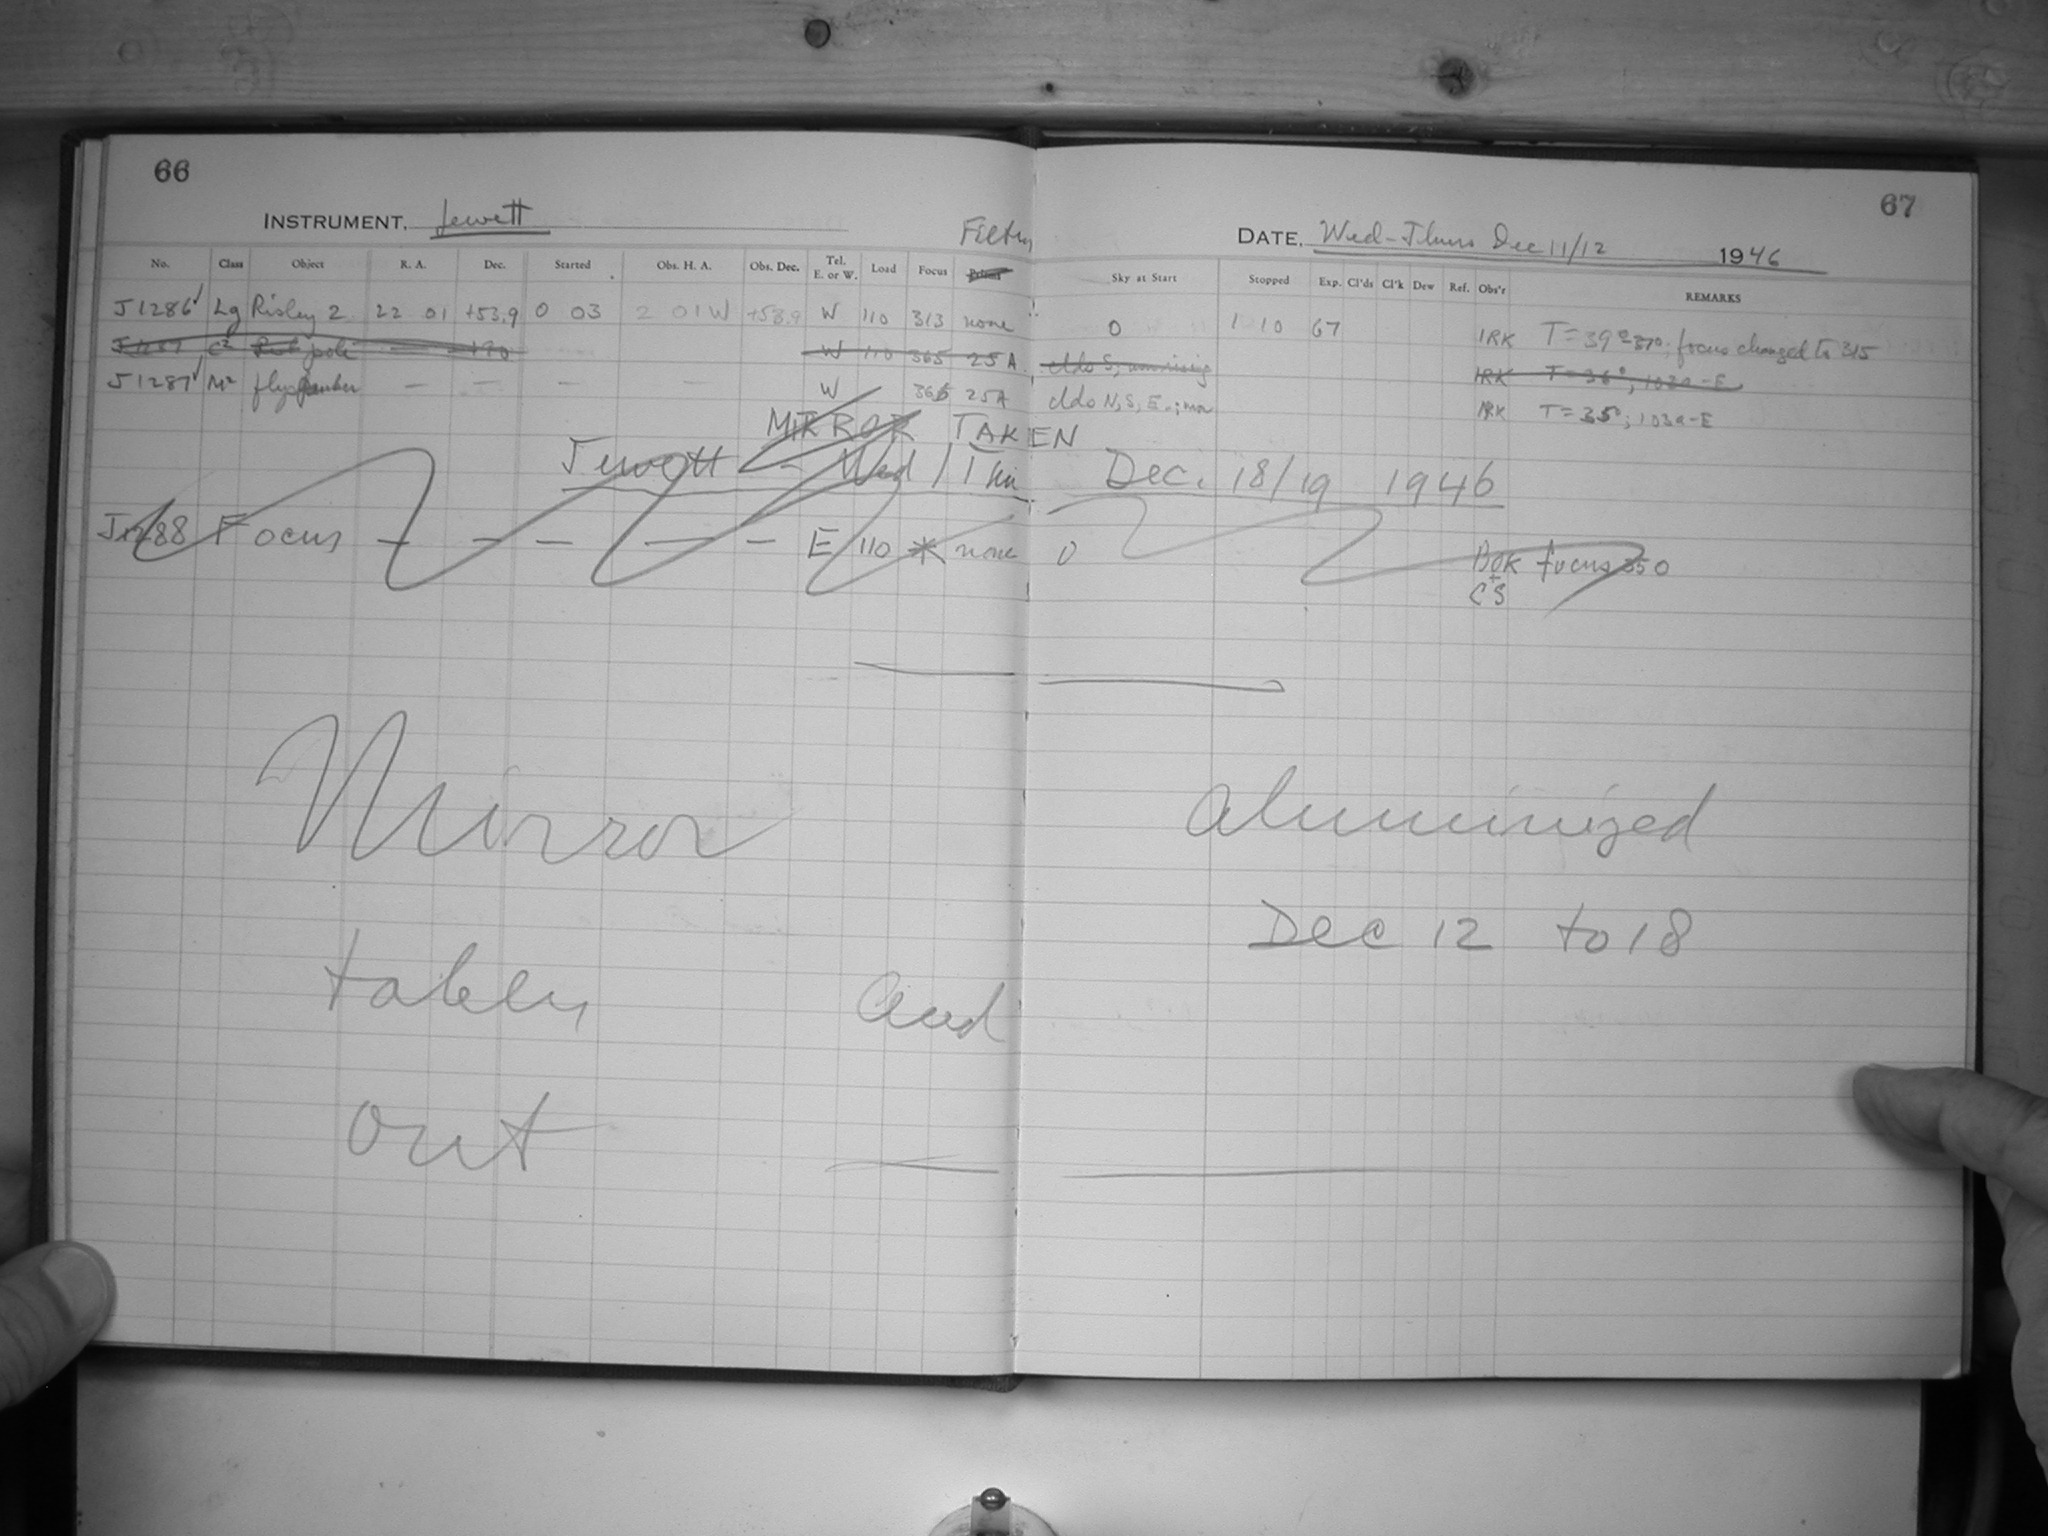 66
67
INSTRUMENT, Jewett
Filter
DATE, Wed-Thurs Dec 11/12 1946
No. Class Object R. A. Dec. Started Obs. H. A. Obs. Dec. Tel. E. or W. Load Focus Sky at Start Stopped Exp. Cl'ds Cl'k Dew Ref. Obs'r REMARKS
J1286 Lg Risley 2 22 01 +53.9 0 03 2 01 W +53.9 W 110 313 none 0 1 10 67 IRK T=39°-37°; focus changed to 315
J1287 C² pole — +90 W 110 365 25A clds S; IRK T=36°; 103a-E
J1287 M² — — — — W 365 25A clds N, S, E.; IRK T=35°; 103a-E
MIRROR TAKEN
Jewett - Wed / Dec. 18/19 1946
J1288 Focus — — — — — E 110 none 0 BOK focus 350
+
CS
Mirror aluminized
Dec 12 to 18
taken and
out